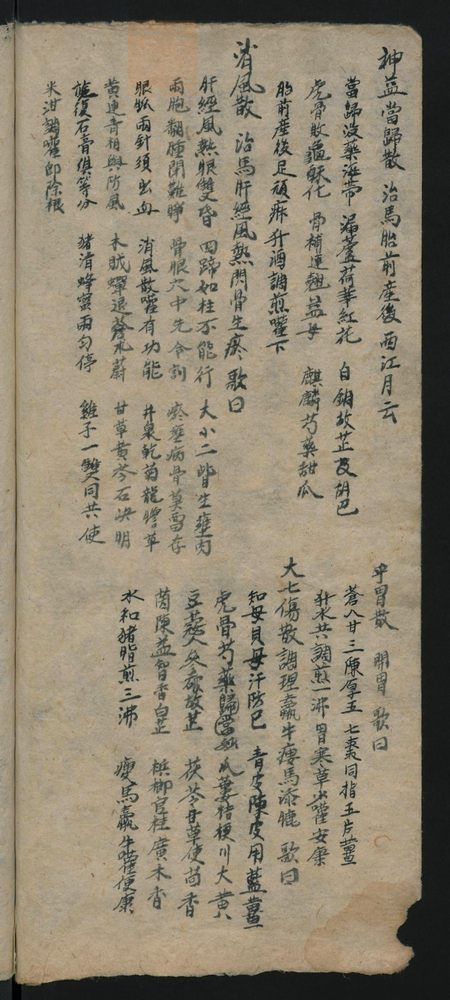 神益當歸散 治馬胎前産後西江月云
當歸没藥海帶 漏蘆荷葉紅花 自銅故芷及胡巴
虎骨敗龜酥化 骨補連翹益母 麒麟芍藥甜瓜
胎前産後足頑麻 升酒調煎嚾下
清風散 治馬肝經風熱閃骨生瘀 歌曰
肝經風熱眼雙昏 四蹄如柱不能行 大小二眥生瘀肉
兩胞翻腫閉難睜 骨眼穴中先令割 瘀壅病骨莫留存
眼脉兩針須出血 消風散嚾有功能 井泉乾菊龍膽草
黄連青相與防風 木賊蟬退 蔚 甘草黄芩石决明
旋復石膏俱等分 猪清蜂蜜兩匀停 雞子一雙同共使
米泔調嚾即除根
平胃散 開胃 歌曰
蒼八甘三陳厚五 七棗同指五片薑
升水共調煎一沸 胃寒草少嚾安康
大七傷散調理羸牛瘦馬添膘 歌曰
知母貝母汗防已 青皮陳皮用藍薑
虎骨芍藥歸當 瓜蔞桔梗川大黄
豆蔻 故芷 茯苓甘草使茴香
茵陳益智香白芷 梹榔官桂廣木香
水和猪脂煎三沸 瘦馬羸牛嚾便康